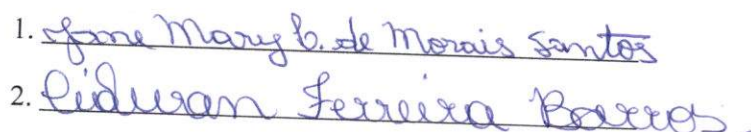 1. Jane Mary C. de Morais Santos
2. Cidwan Ferreira Barros